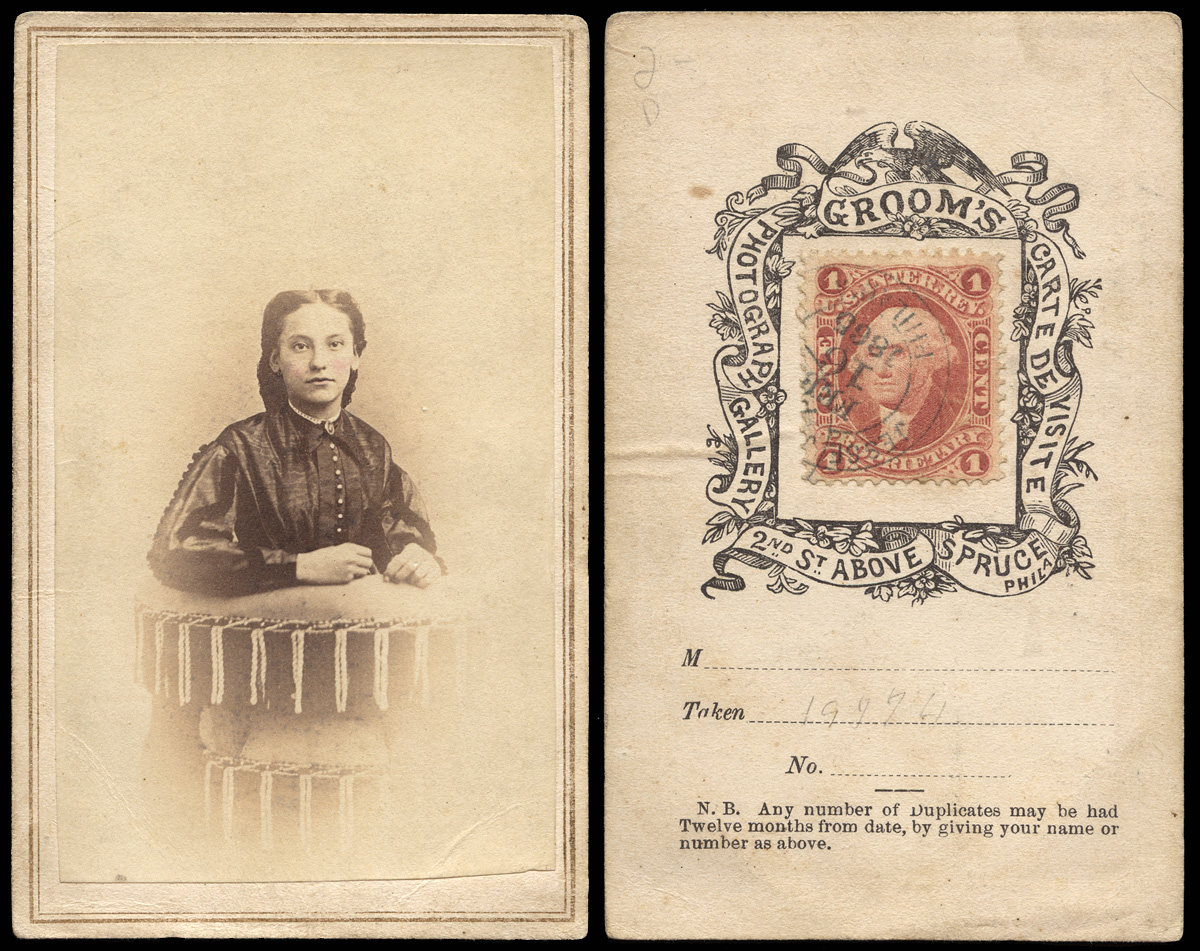 GROOM'S
PHOTOGRAPH GALLERY
CARTE DE VISITE
1 1
U.S. INTER. REV.
ONE CENT
PROPRIETARY
1
1866
2ND ST. ABOVE SPRUCE
PHILA
M
Taken 19774
No.
N. B. Any number of Duplicates may be had
Twelve months from date, by giving your name or
number as above.